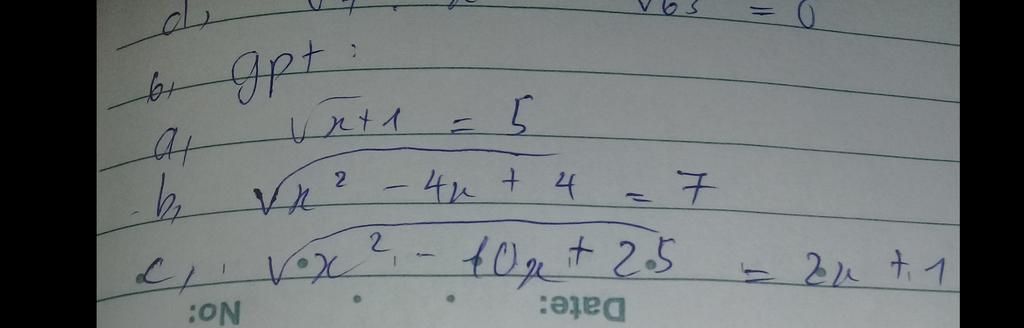 d,
= 0
b, gpt :
a, √x + 1 = 5
b, √x² - 4x + 4 = 7
c, √x² - 10x + 25 = 2x + 1
No: Date: